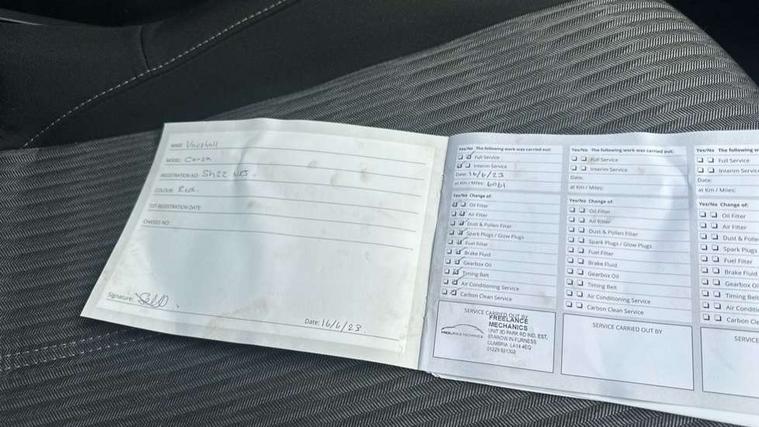 MAKE: Vauxhall
MODEL: Corsa
REGISTRATION NO: Sh22
COLOUR: Red.
1ST REGISTRATION DATE:
CHASSIS NO:
Signature:
Date: 16/6/23
Yes/No The following work was carried out:
Full Service
Interim Service
Date: 16/6/23
at Km / Miles: 6061
Yes/No Change of:
Oil Filter
Air Filter
Dust & Pollen Filter
Spark Plugs / Glow Plugs
Fuel Filter
Brake Fluid
Gearbox Oil
Timing Belt
Air Conditioning Service
Carbon Clean Service
SERVICE CARRIED OUT BY
FREELANCE
MECHANICS
UNIT 9D PARK RD IND. EST,
BARROW IN FURNESS
CUMBRIA LA14 4EQ
Yes/No The following work was carried out:
Full Service
Interim Service
Date:
at Km / Miles:
Yes/No Change of:
Oil Filter
Air Filter
Dust & Pollen Filter
Spark Plugs / Glow Plugs
Fuel Filter
Brake Fluid
Gearbox Oil
Timing Belt
Air Conditioning Service
Carbon Clean Service
SERVICE CARRIED OUT BY
Yes/No The following wo
Full Service
Interim Service
Date:
at Km / Miles:
Yes/No Change of:
Oil Filter
Air Filter
Dust & Polle
Spark Plugs
Fuel Filter
Brake Fluid
Gearbox Oi
Timing Belt
Air Conditio
Carbon Cle
SERVICE